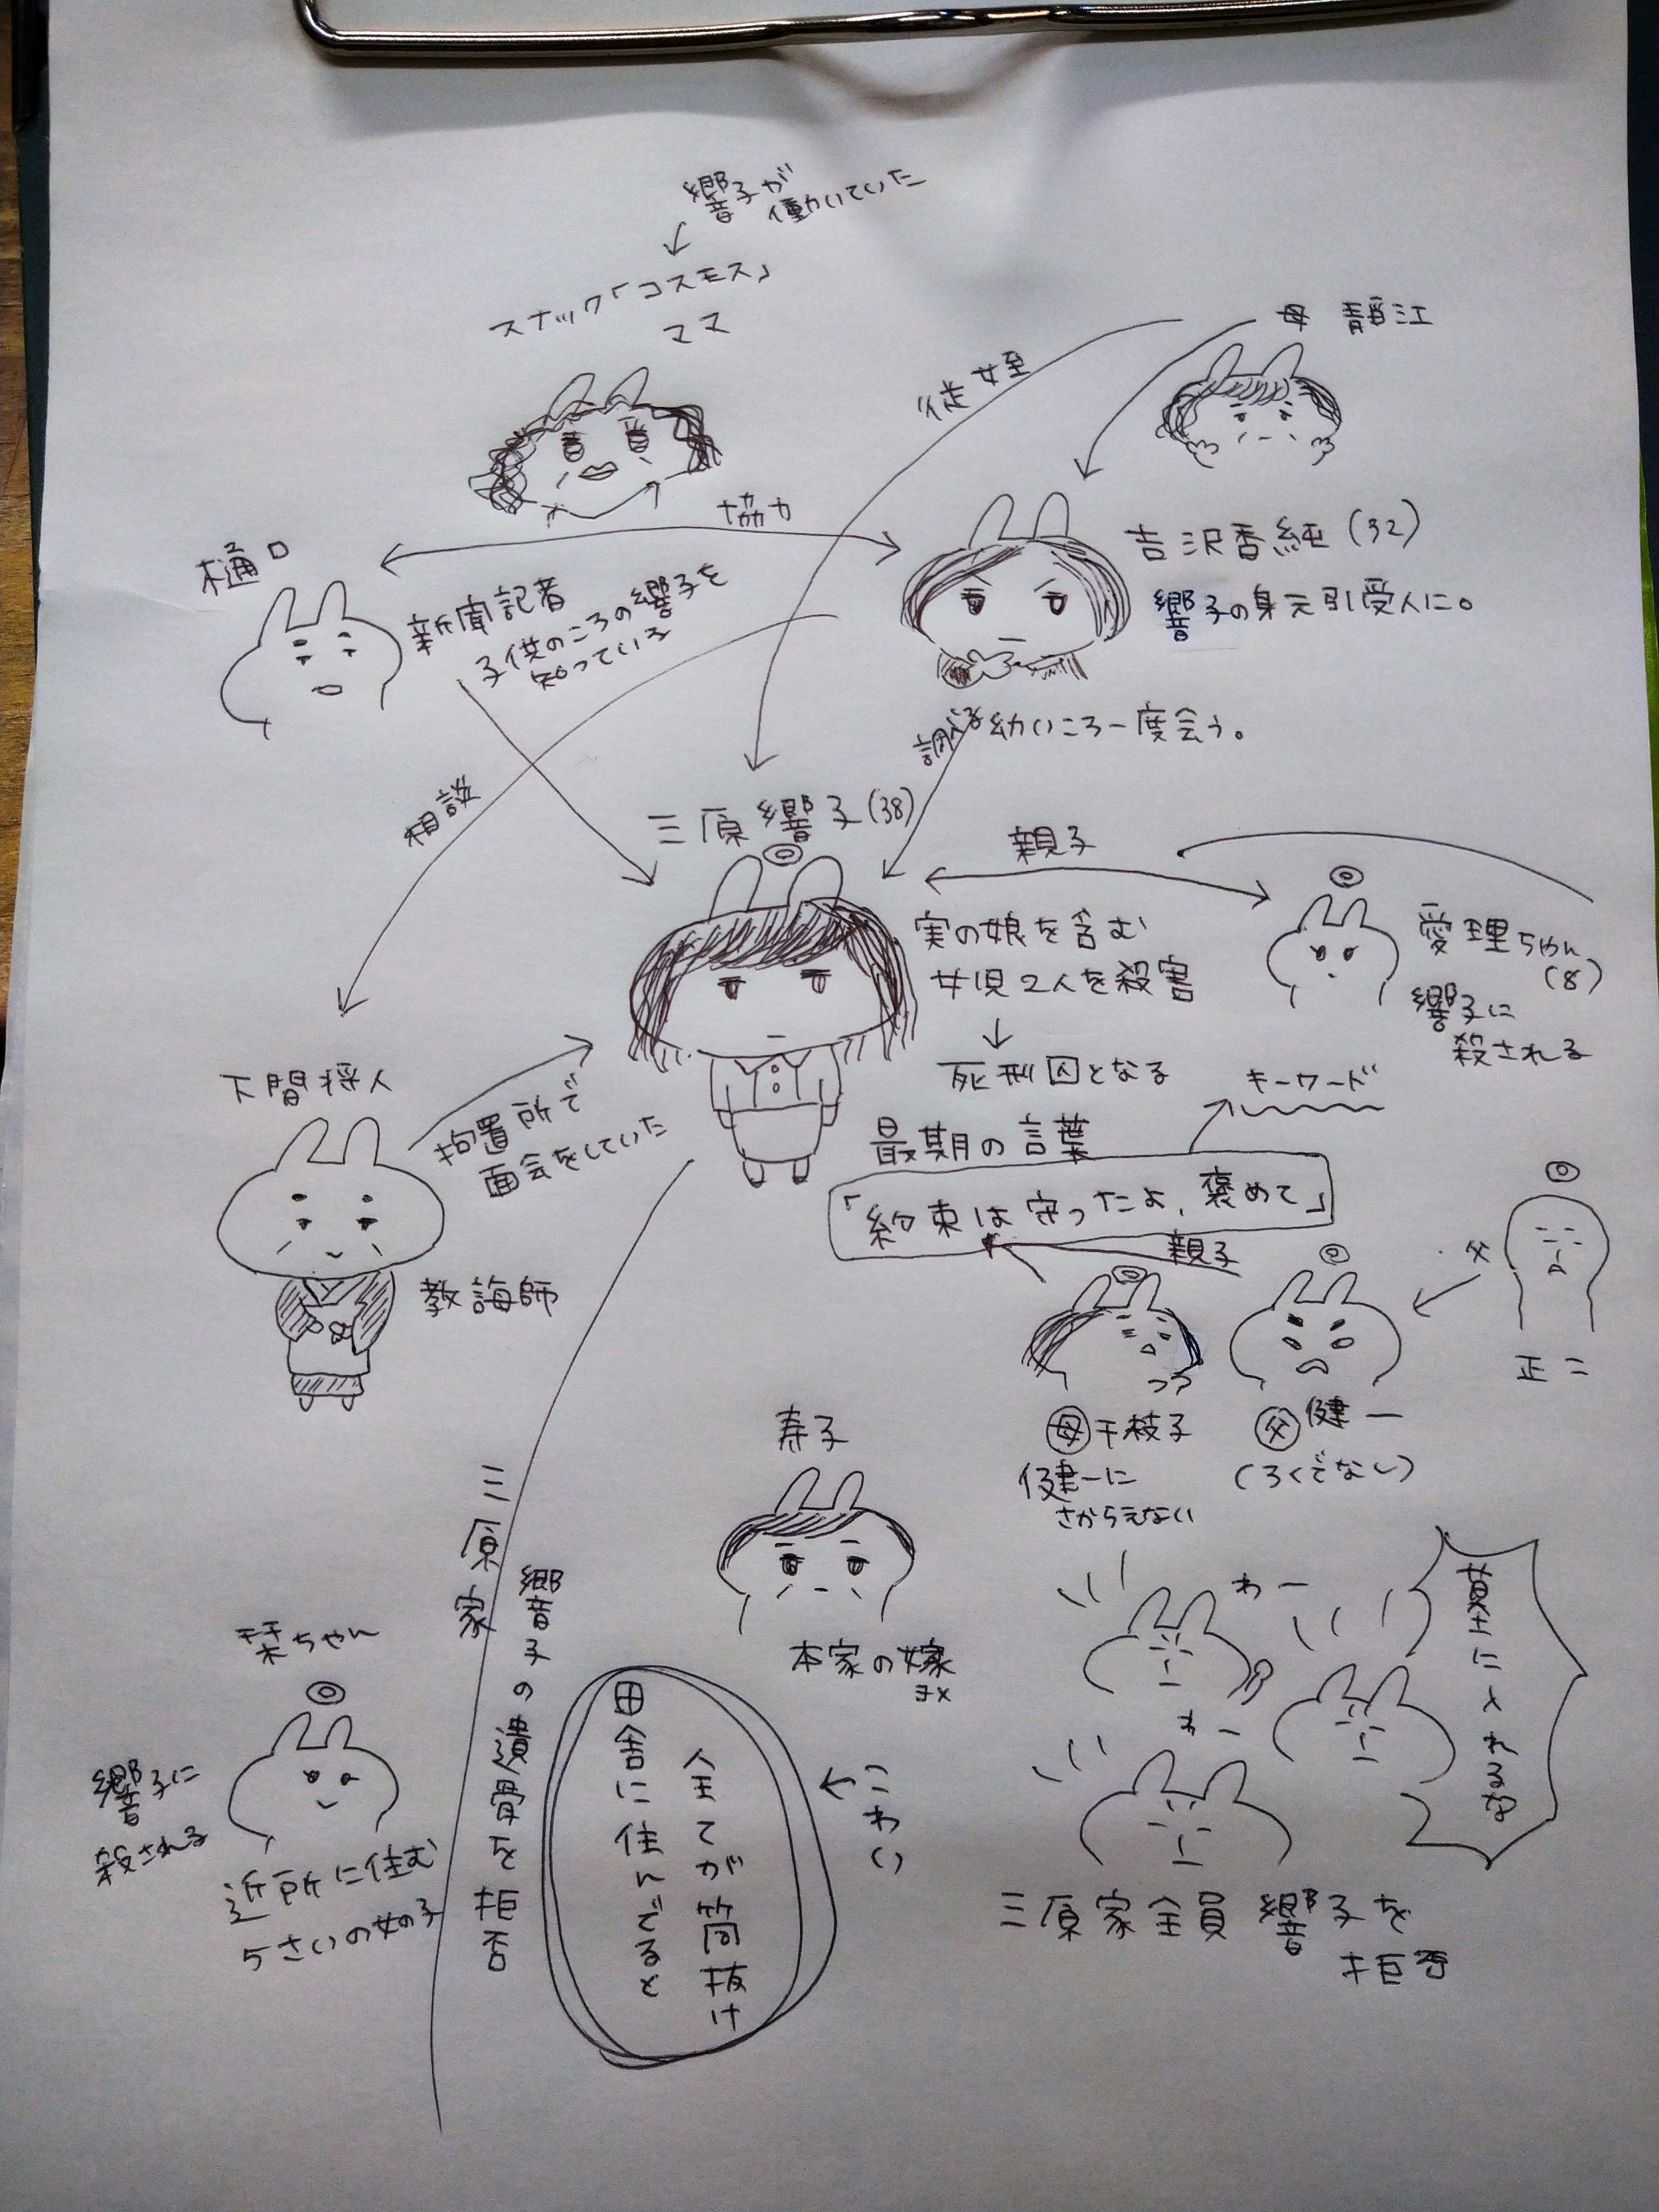 響子が
働いていた
スナック「コスモス」
ママ
母 静江
従姪
協力
樋口
新聞記者
子供のころの響子を
知っている
吉沢香純(32)
響子の身元引受人に。
調べる
幼いころ一度会う。
相談
三原響子(38)
親子
実の娘を含む
女児2人を殺害
死刑囚となる
愛理ちゃん
(8)
響子に
殺される
キーワード
下間将人
拘置所で
面会をしていた
教誨師
最期の言葉
「約束は守ったよ、褒めて」
親子
父
正二
母千枝子
健一に
さからえない
父健一
(ろくでなし)
寿子
本家の嫁
ヨメ
三原家
響子の遺骨を拒否
栞ちゃん
響子に
殺される
近所に住む
5さいの女の子
田舎に住んでると
全てが筒抜け
こわい
わー
わー
墓に入れるな
三原家全員 響子を
拒否